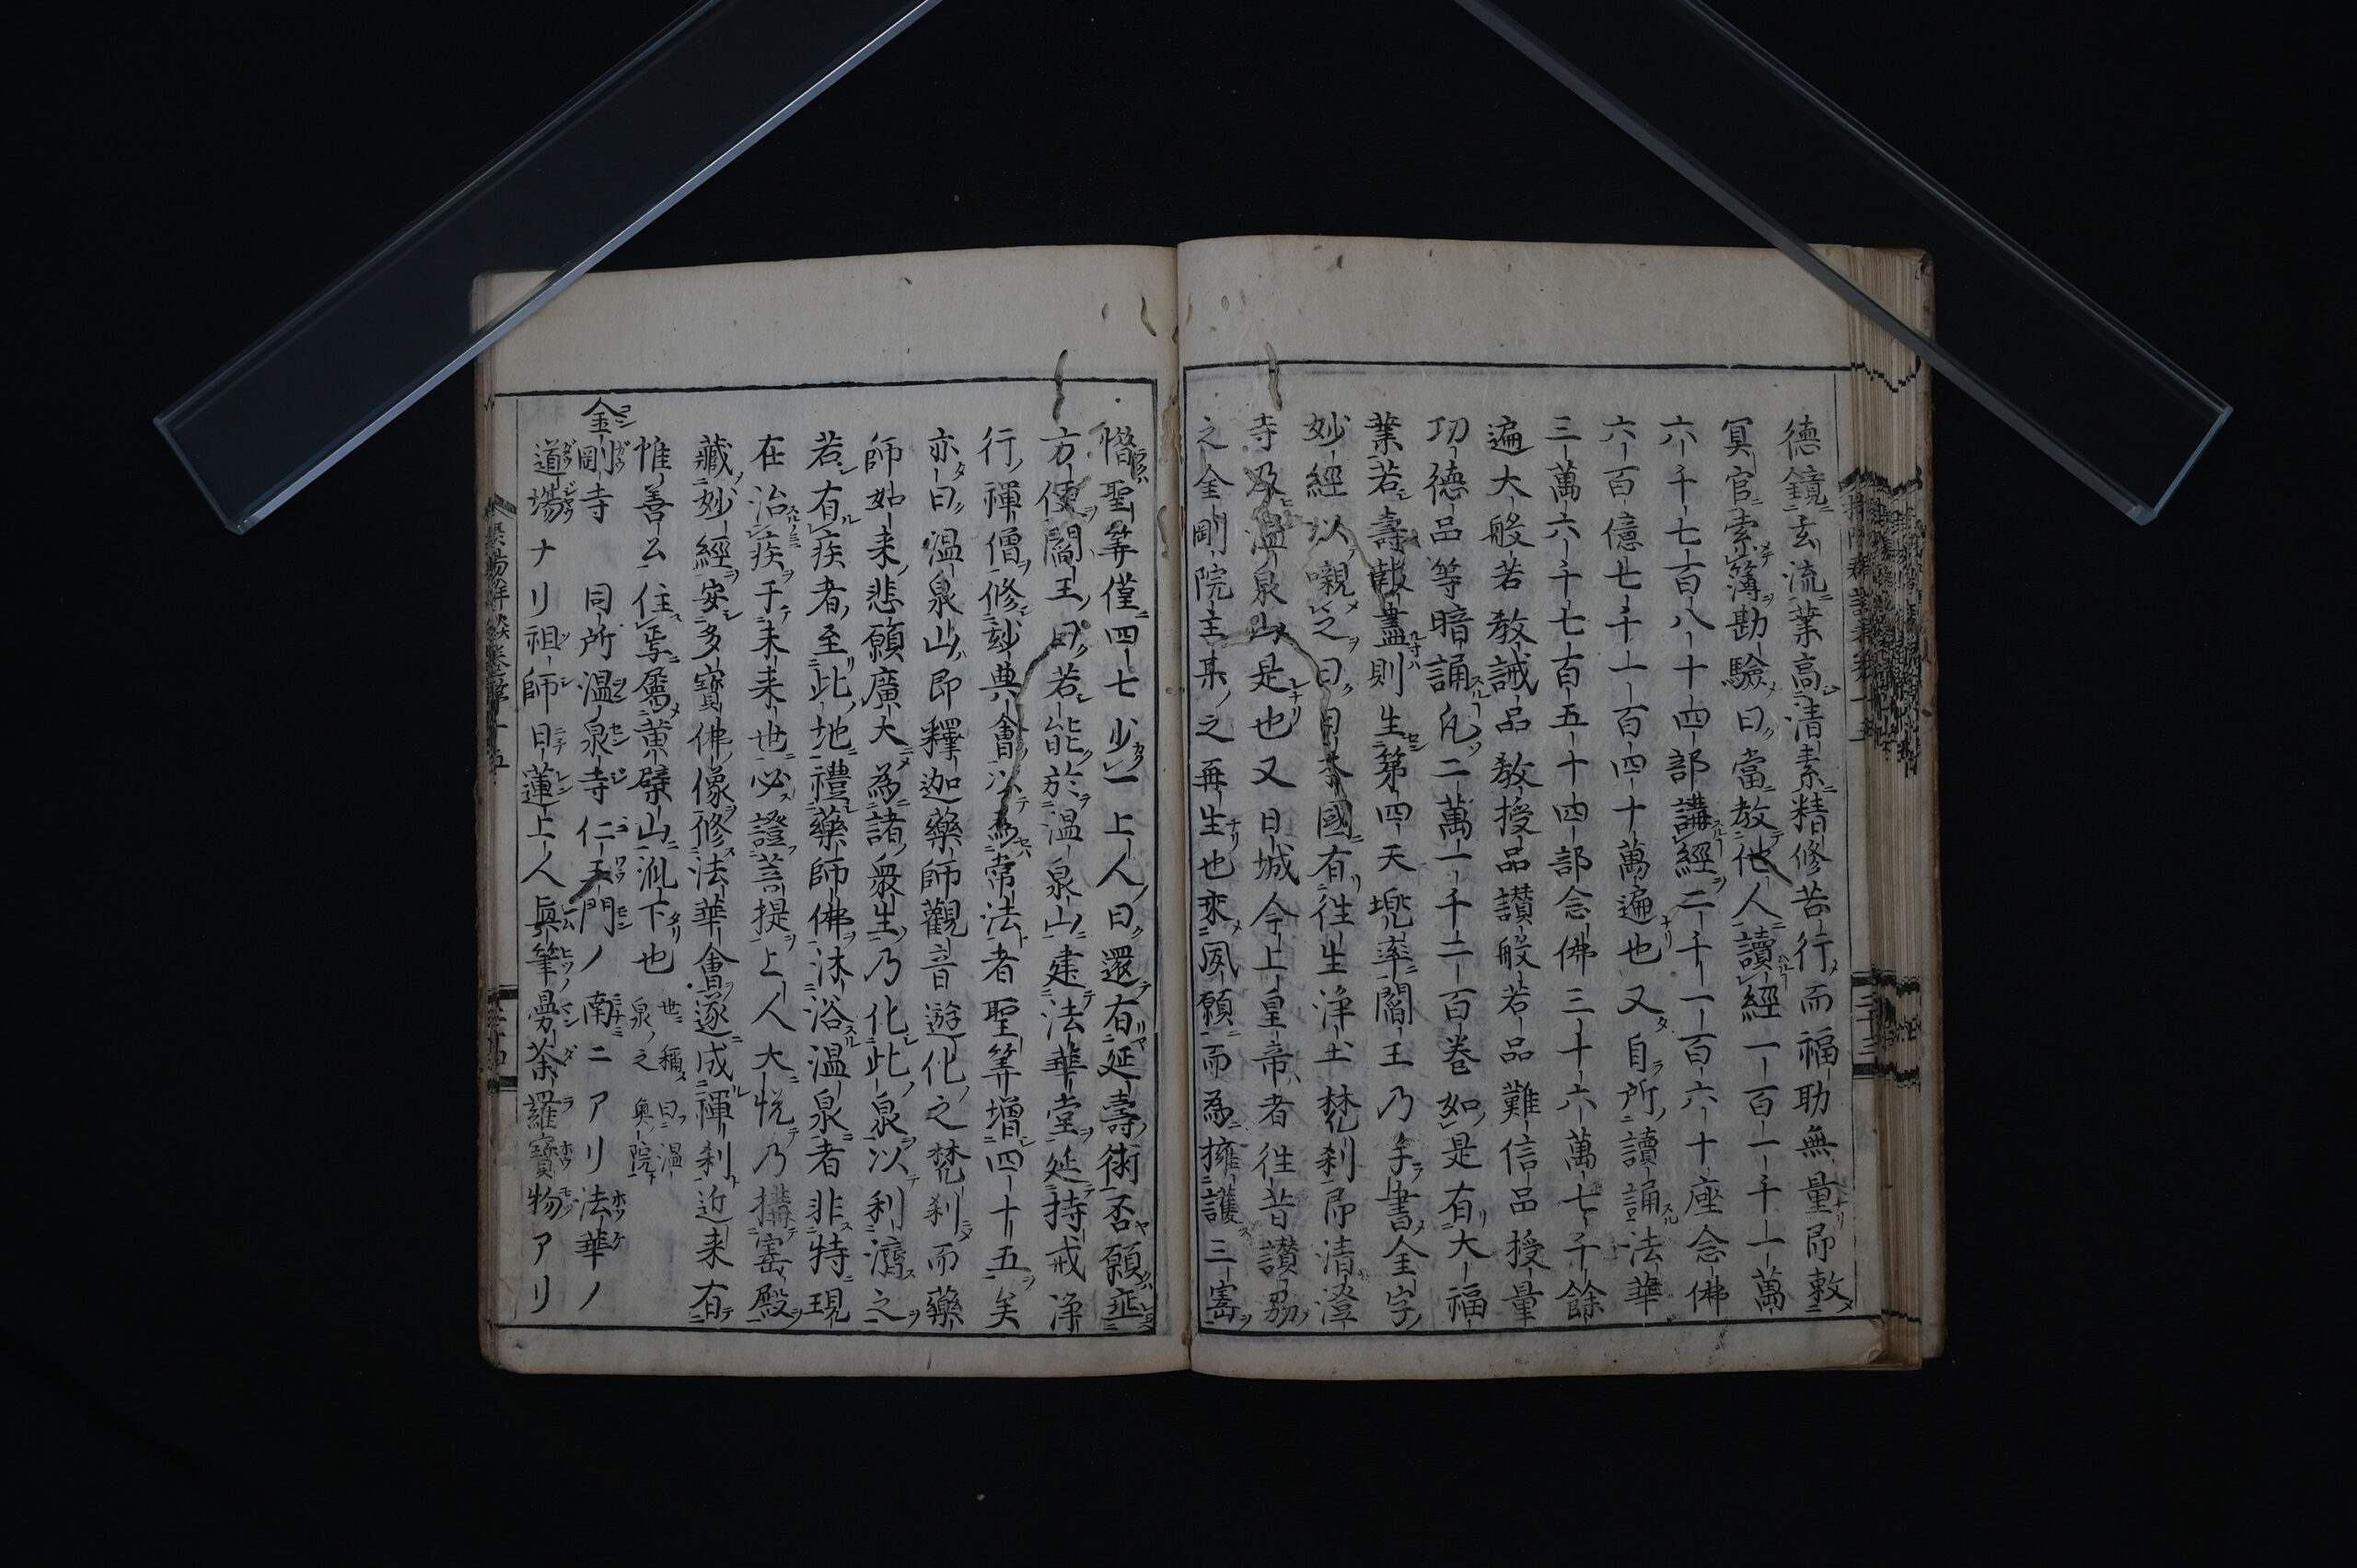 德鏡玄流葉高清素精修苦行而福助無量即敕
冥官索簿勘驗曰當教他人讀經一百一千一萬
六千七百八十四部講經二千一百六十座念佛
六百億七千一百四十萬遍也又自所讀誦法華
三萬六千七百五十四部念佛三十六萬七千餘
遍大般若教誡品教授品讃般若品難信品授量
功德品等暗誦凡二萬一千二百卷如是有大福
業若壽報盡則生第四天兜率閻王乃手書金字
妙經以嚫之曰日本國有往生淨土梵刹即清澄
寺及温泉山是也又日城今上皇帝者往昔讃嵓
之金剛院主某之再生也乘夙願而為擁護三宝
惜聖筭僅四七少一上人曰還有延壽術否願垂
方便閻王曰若能於温泉山建法華堂延持戒淨
行禪僧修妙典會以為常法者聖筭增四十五矣
亦曰温泉山即釋迦藥師觀音遊化之梵刹而藥
師如来悲願廣大為諸衆生乃化此泉以利濟之
若有疾者至此地禮藥師佛沐浴温泉者非特現
在治疾于未来世必證菩提上人大悦乃搆宝殿
藏妙經安多寶佛像修法華會遂成禪刹近来有
惟善公住焉屬黄檗山派下也 世稱曰温泉之奥院
金剛寺 同所温泉寺仁王門ノ南ニアリ法華ノ
道場ナリ祖師日蓮上人眞筆曼荼羅寶物アリ